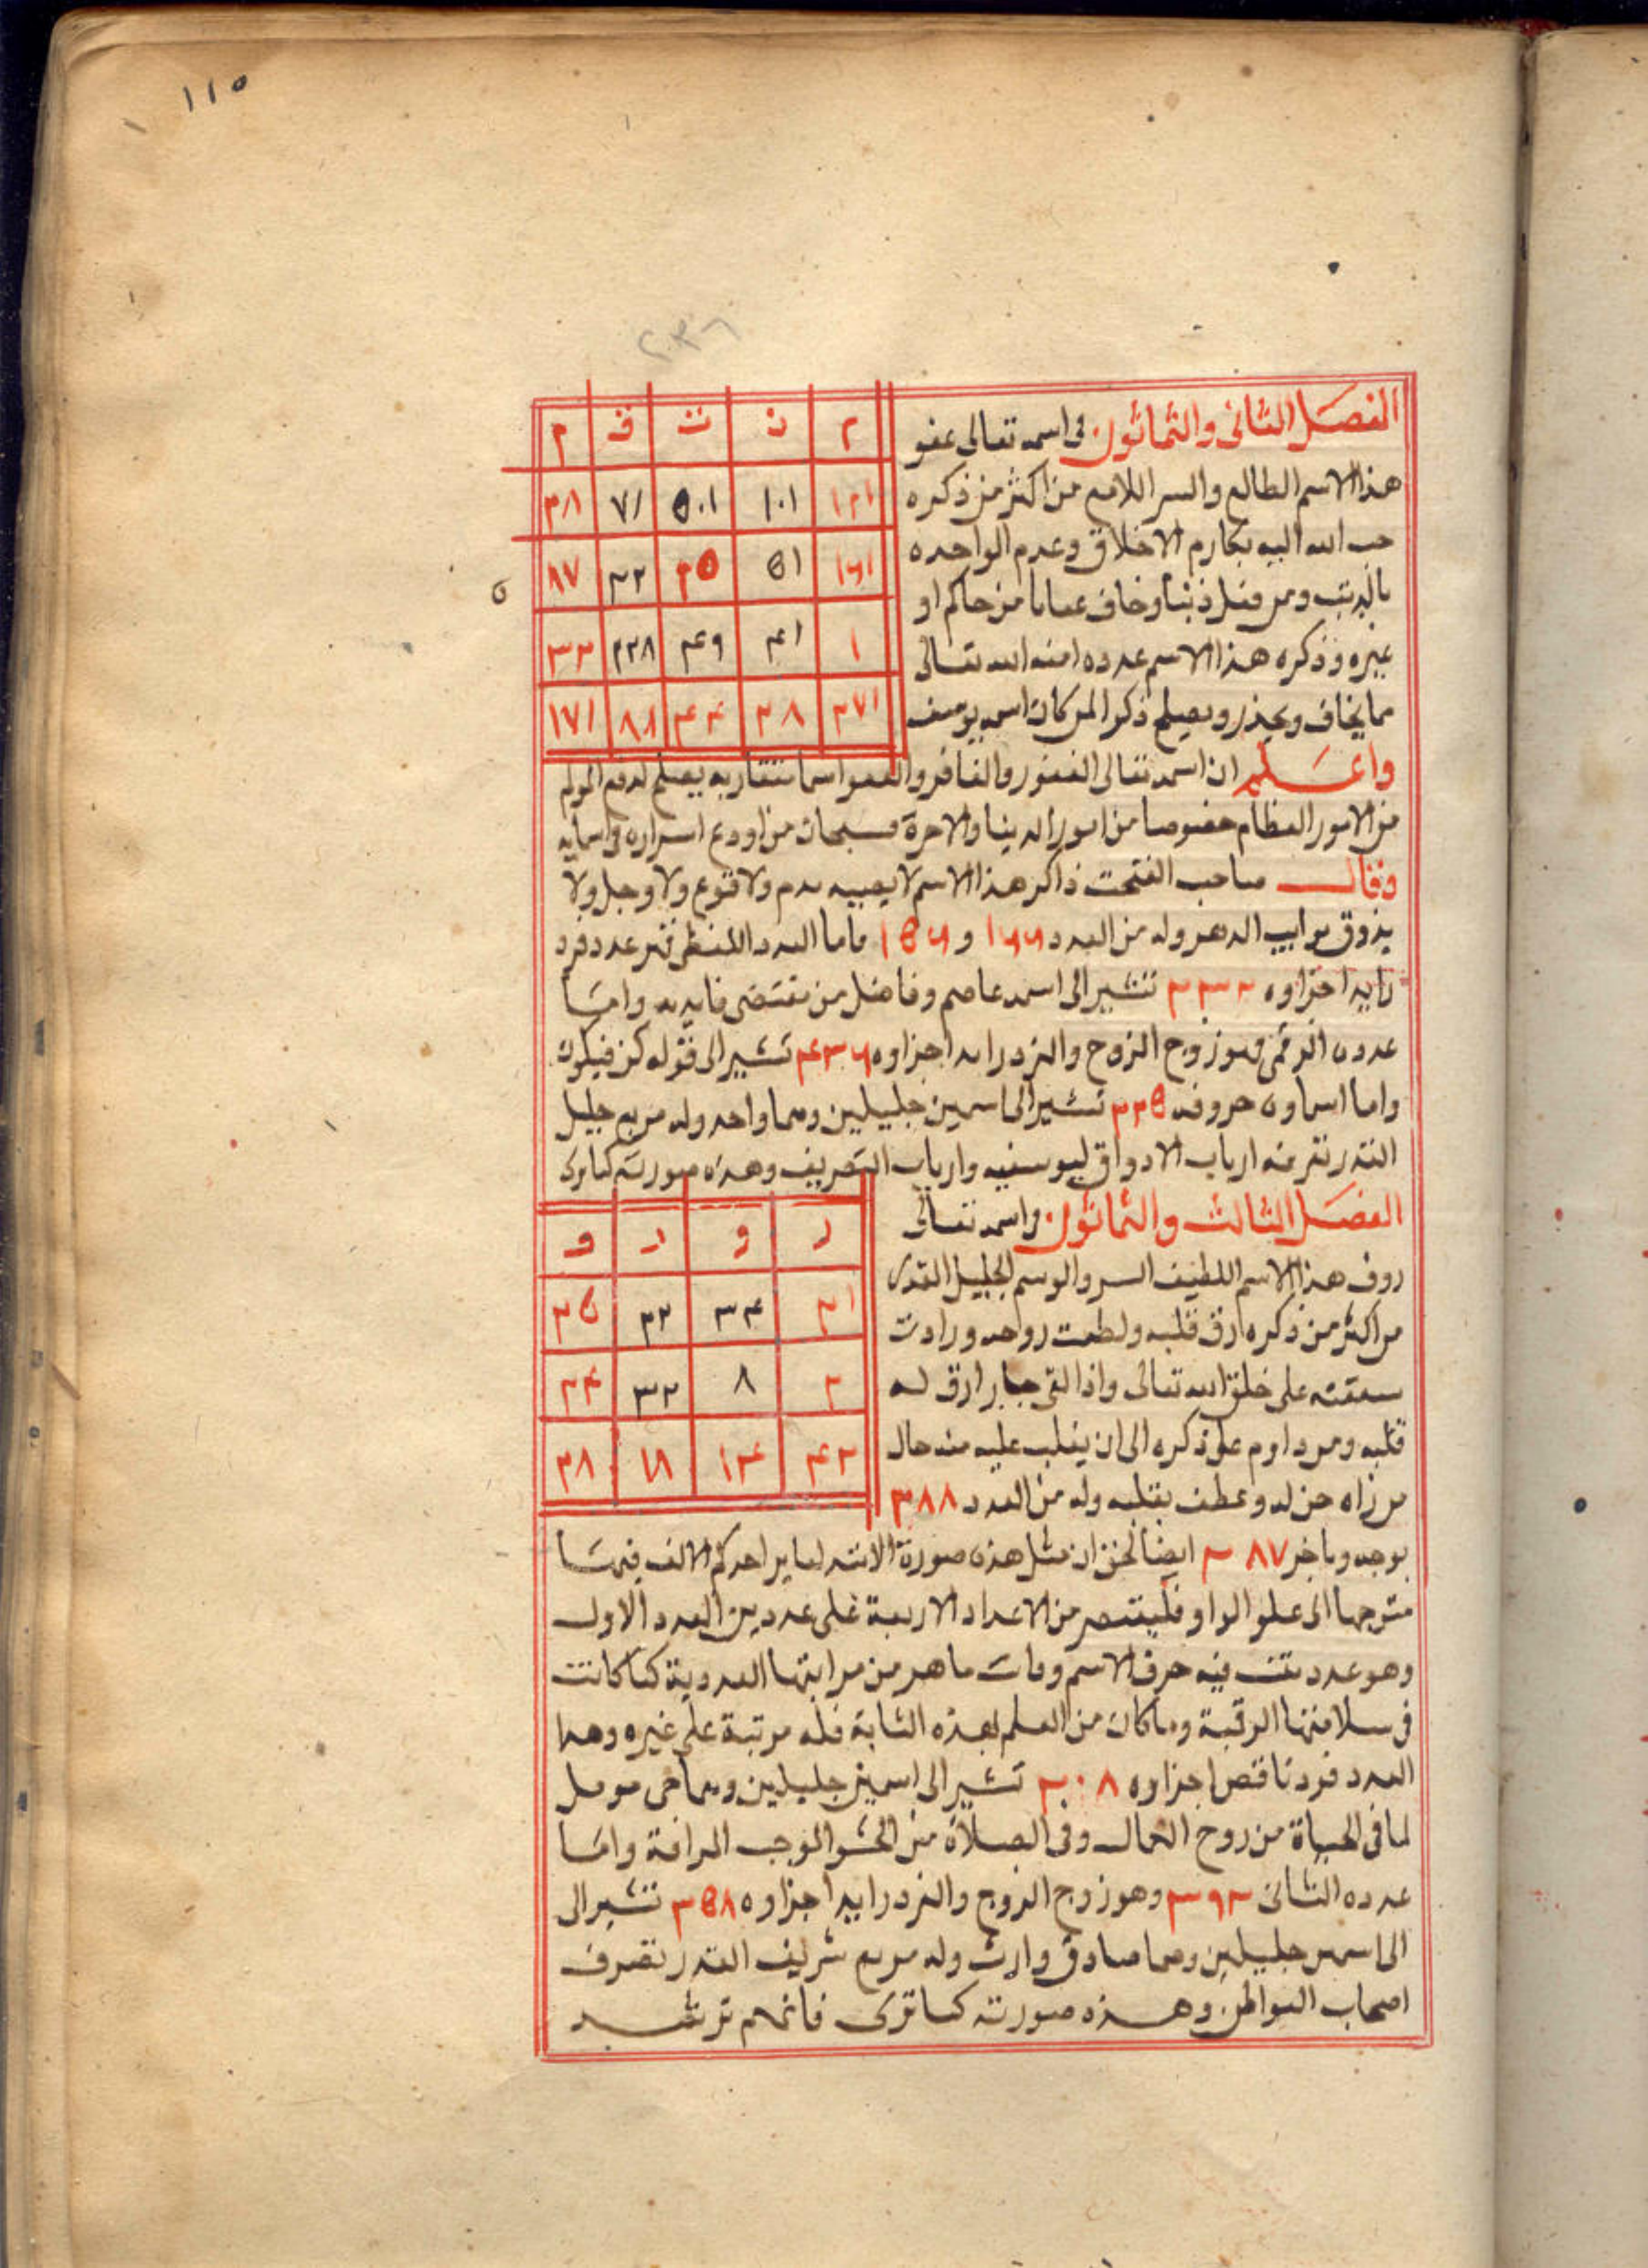 ١١٥
٢٣٦
الفصل الثانى والثمانون فى اسمه تعالى عفو
هذا الاسم الطالع والسر اللامع من اكثر من ذكره
حبب الله اليه مكارم الاخلاق وعدم الواخده
بالذنب ومن فعل ذنبا وخاف عقابا من حاكم او
غيره وذكره هذا الاسم عدده امنه الله تعالى
مما يخاف ويحذر ويصلح ذكرا لمن كان اسمه يوسف
م ف ت ن ٢
٣٨ ٧١ ٥٠١ ١٠١ ١٢١
٨٧ ٣٢ ٣٥ ٥١ ١٦١
٣٣ ٢٢٨ ٤٩ ٤١ ١
١٧١ ٨٨ ٤٤ ٢٨ ٢٧١
واعلم ان اسمه تعالى الغفور والغافر والعفو اسما متقاربه يصلح لدفع المولم
من الامور العظام خصوصا من امور الدينا والاخرة فسبحان من اودع اسراره فى اسمايه
وقال صاحب الفتحت ذاكر هذا الاسم لا يصيبه هدم ولا قنوع ولا وجل ولا
يذوق نوايب الدهر وله من العدد ١٦٦ و ١٥٦ فاما العدد اللفظى فهو عدد فرد
زايد اجزاوه ٢٣٢ تشير الى اسمه عاصم وفاضل من مقتضى فايدته واما
عدده الرقمى فهو زوج الزوج والفرد زايد اجزاوه ٤٣٦ تشير الى قوله كن فيكون
واما اسماوه حروفه ٢٣٥ تشير الى اسمين جليلين وهما واحد وله مربع جليل
القدر تعرفه ارباب الاذواق اليوسفيه وارباب التصريف وهذه صورته كما ترى
الفصل الثالث والثمانون فى اسمه تعالى
روف هذا الاسم اللطيف السر والوسم الجليل القدر
من اكثر من ذكره ارق قلبه ولطفت روحه وزادت
شفقته على خلق الله تعالى واذا لقى جبار ارق له
قلبه ومن داوم على ذكره الى ان يغلب عليه منه حال
من راه حن له وعطف بقلبه وله من العدد ٣٨٨
و ر و ر
٣٥ ٣٢ ٣٤ ٣١
٢٤ ٣٢ ٨ ٢
٣٨ ١٨ ١٣٤ ٤٢
بوجه وباخر ٢٨٧ ايضا لحق ان مثل هذه صورة الانته لما ير احد كم الالف فيها
متوجها الى علو الواو فليقتصر من الاعداد الاربعة على عددين العدد الاول
وهو عدد تقف فيه حرف الاسم وفات ما هر من مراتبها العددية كما كانت
فى سلامتها الرقبة وما كان من العلم بهذه الثابة فله مرتبة على غيره وهذا
العدد فرد ناقص اجزاوه ٣٠٨ تشير الى اسمين جليلين وهما حى موصل
لما فى الحياة من روح الكمال وفى الصلاة من الخشو الموجب الرافة واما
عدده الثانى ٢٩٢ وهو زوج الزوج والفرد زايد اجزاوه ٣٥٨ تشير الى
الى اسمين جليلين وهما صادق وارث وله مربع شريف القدر تصرف
اصحاب البواطن وهذه صورته كما ترى فافهم ترشد